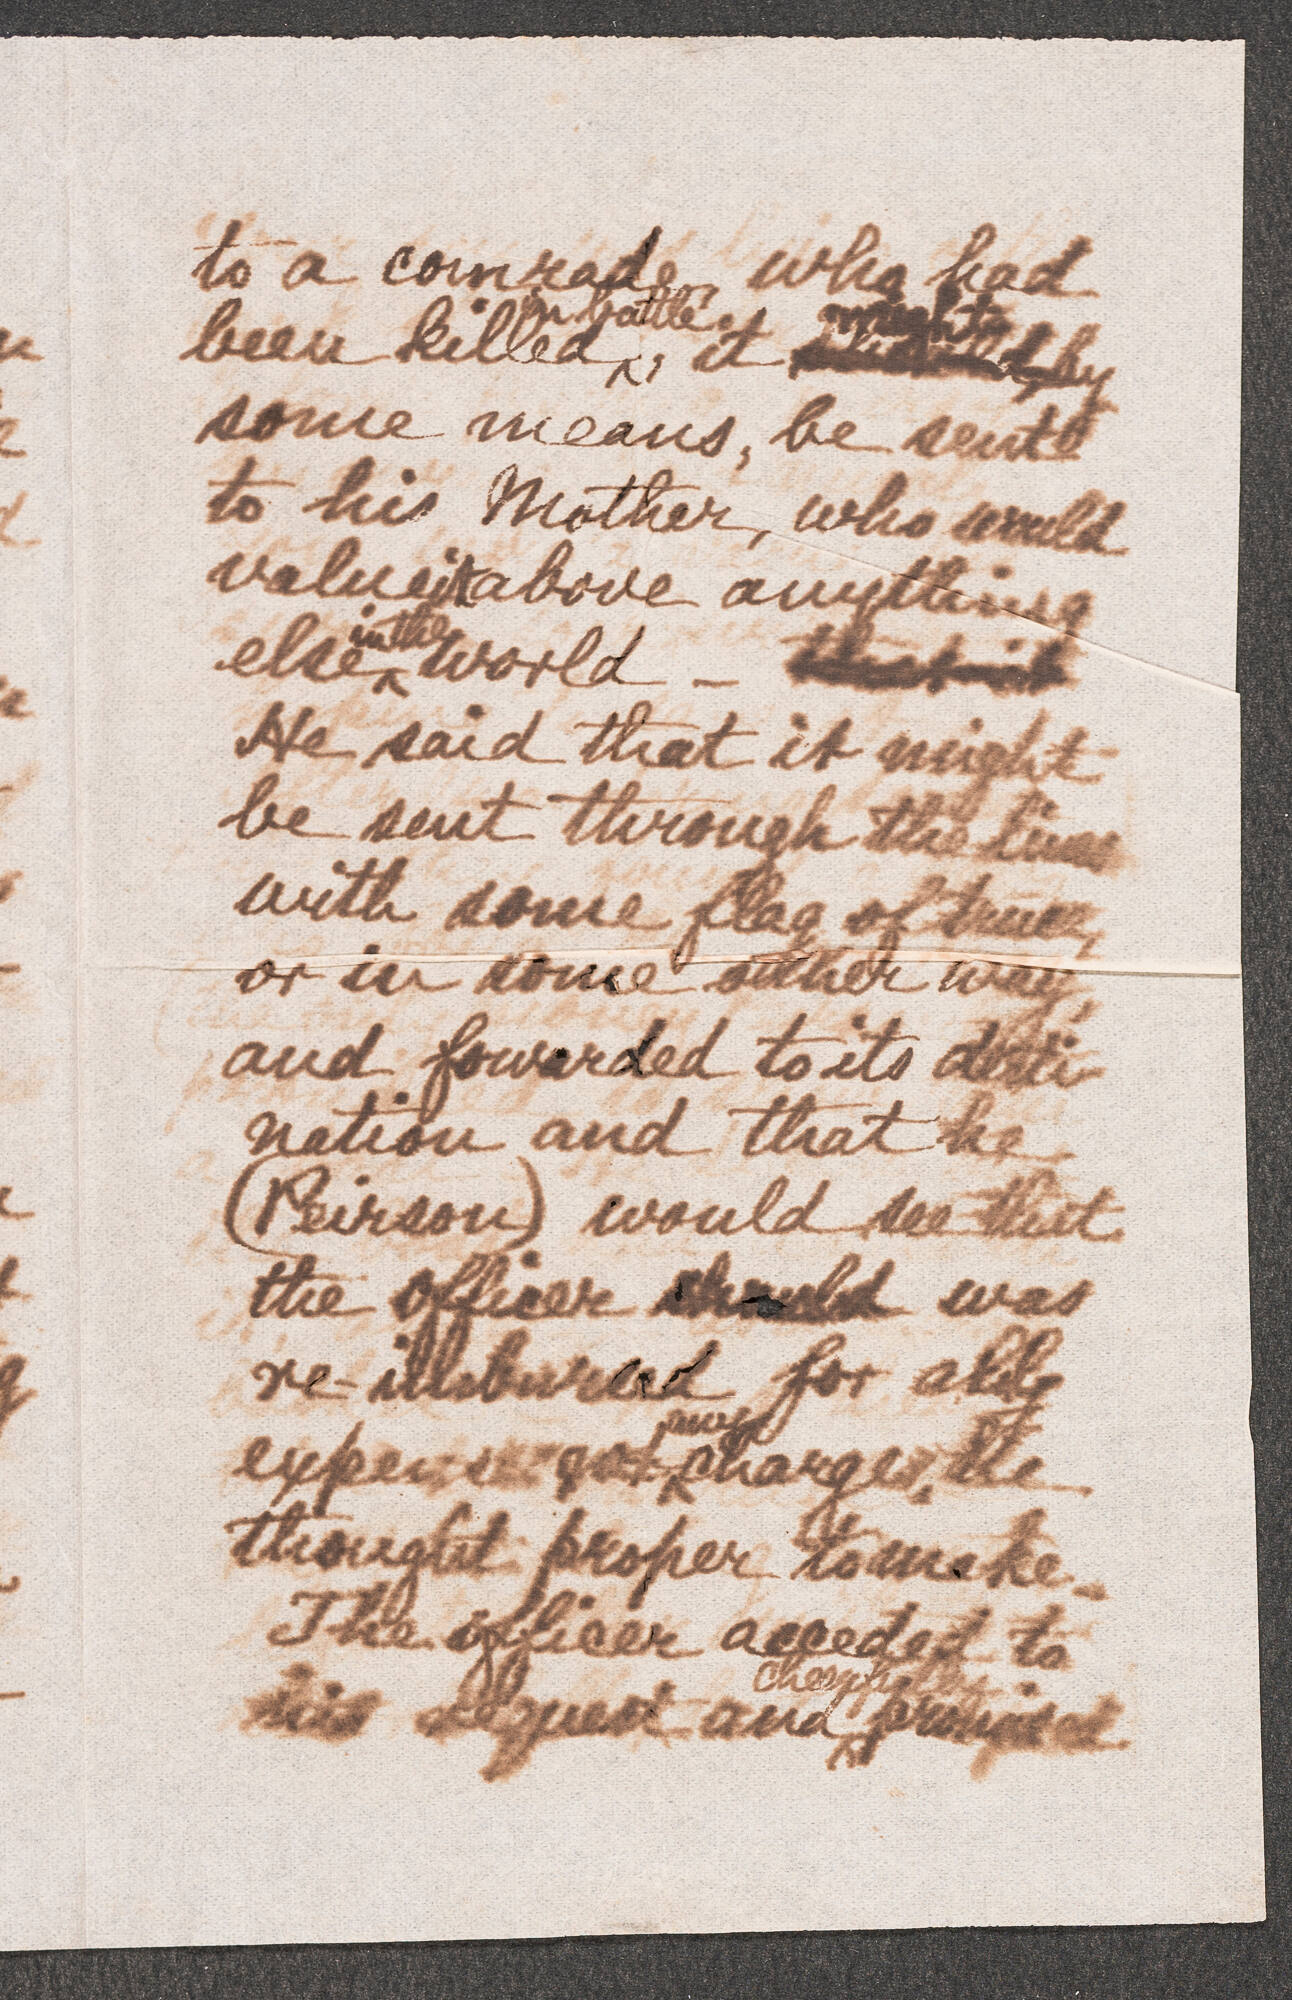 to a comrade, who had
been killed in battle, it might by
some means, be sent
to his Mother, who would
value it above anything
else in the world –
He said that it might
be sent through the lines
with some flag of truce,
or in some other way,
and fowarded to its desti
nation and that he
(Peirson) would see that
the officer should was
re-imbursed for all
expense or any charges, he
thought proper to make –
The officer acceded to
his request and cheerfully promised